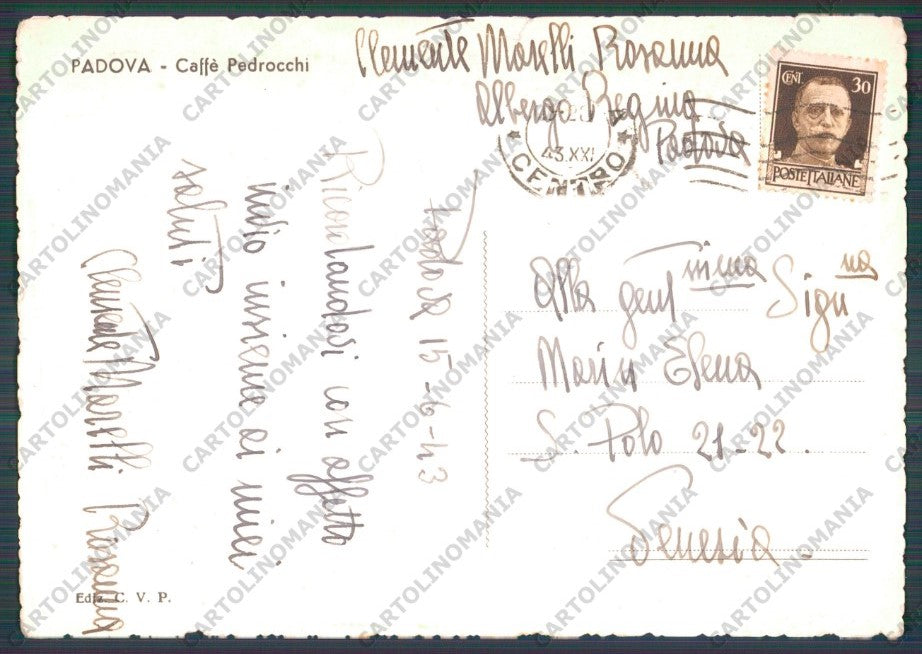 PADOVA - Caffè Pedrocchi
Clemente Morelli Rosanna
Albergo Regina
Padova
43.XXI
CENTRO
CENT 30
POSTE ITALIANE
Padova 15-6-43
Ricordandosi con affetto
invio insieme ai miei
saluti
Clemente Morelli Rosanna
Alla gent issima Sign na
Maria Elena
S. Polo 21-22.
Venezia.
Ediz. C. V. P.
CARTOLINOMANIA